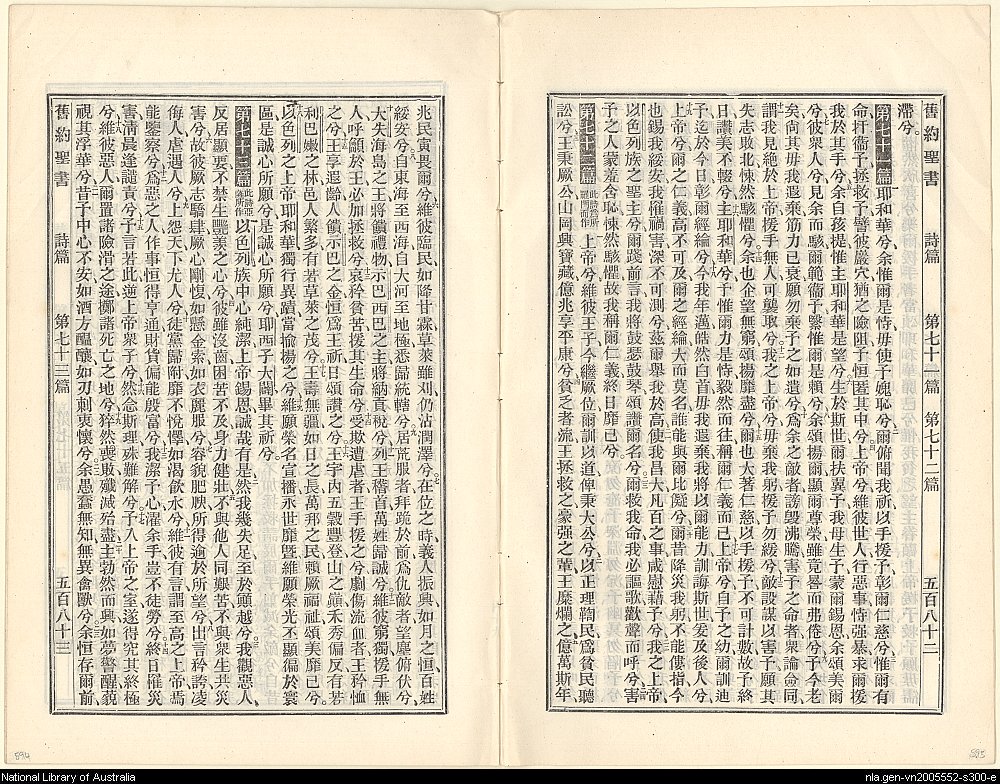 舊約聖書 詩篇 第七十一篇 第七十二篇 五百八十二
滯兮。
第七十一篇 耶和華兮、余惟爾是恃、毋使予媿恥兮、爾俯聞我祈、以手援予、彰爾仁慈兮、惟爾有
命、扞衞予、拯救予、譬彼巖穴、猶之險阻、予恒匿其中兮、上帝兮、維彼世人、行惡事、恃强暴、求爾援
我於其手兮、余自孩提、惟主耶和華是望兮、生於斯世、爾扶翼予、我母生予、蒙爾錫恩、余頌美爾
兮、彼衆人兮、見余而駭、爾範衞予、繄惟爾是賴兮、余頌揚爾、顯爾尊榮、雖竟晷而弗倦兮、予今老
矣、尚其毋我遐棄、筋力已衰、願勿棄予之如遺兮、爲余之敵者、謗讟沸騰、害予之命者、衆論僉同、
謂我見絕於上帝、援手無人、可襲取兮、我之上帝兮、毋棄我躬、援予勿緩兮、敵設謀以害予、願其
失志敗北、悚然駭懼兮、余也企望無窮、頌揚靡盡兮、爾也大著仁慈、以手援予、不可計數、故予終
日讚美不輟兮、主耶和華兮、予惟爾力是恃、毅然而往、稱爾仁義而已、上帝兮、自予之幼、爾訓迪
予、迄於今日、彰爾經綸兮、今我年邁、皓然白首、毋我遐棄、我將以爾能力、訓誨斯世、爰及後人兮、
上帝兮、爾之仁義、高不可及、爾之經綸、大而莫名、誰能與爾比儗兮、爾昔降災我躬、不能僂指、今
也錫我綏安、我罹禍害、深不可測兮、茲爾舉我於高、使我昌大、凡百之事、咸慰藉予兮、我之上帝、
以色列族之聖主兮、爾踐前言、我將鼓瑟鼓琴、頌讚爾名兮、爾救我命、我必謳歌、歡聲而呼兮、害
予之人、蒙羞含恥、悚然駭懼、故我稱爾仁義、終日靡已兮。
第七十二篇 上帝兮、維彼王子、今繼厥位、爾訓以道、俾秉大公兮、以正理鞫民、爲貧民聽
訟兮、王秉厥公、山岡興寶藏、億兆享平康兮、貧乏者流、王拯救之、豪强之輩、王糜爛之、億萬斯年、
兆民寅畏爾兮、維彼臨民、如降甘霖、草萊雖刈、仍沾潤澤兮、在位之時、義人振興、如月之恒、百姓
綏安兮、自東海至西海、自大河至地極、悉歸統轄兮、居荒服者、拜跪於前、爲仇敵者、望塵俯伏兮、
大失海島之王、將饋禮物、示巴西巴之主、將納貢稅兮、列王稽首、萬姓歸誠兮、維彼窮獨、援手無
人、呼籲於王、必加拯救兮、哀矜貧苦、援其生命兮、受欺遭虐者、王手援之兮、劇傷流血者、王矜恤
之兮、王享遐齡、人饋示巴之金、恒爲王祈、日頌讚之兮、王宇內五穀豐登、山之巔、禾秀偏反、有若
利巴嫩之林、邑人繁多、有若草萊之茂兮、王壽無疆、如日之長、萬邦之民、賴厥福祉、頌美靡已兮、
以色列之上帝耶和華、獨行異蹟、當揄揚之兮、維願榮名宣播、永世靡暨、維願榮光丕顯、徧於寰
區、是誠心所願兮、是誠心所願兮、耶西子大闢畢其祈兮。
第七十三篇 以色列族、中心純潔、上帝錫恩、誠哉有是、然我幾失足、至於顚越兮、我觀惡人、
反居顯要、不禁生艷羡之心兮、彼雖沒齒、困苦不及身、力健壯、不與他人同艱苦、不與衆生共災
害兮、故彼厥志驕肆、厥心剛愎、如懸金索、如衣麗服兮、容貌肥腴、所得逾於所望兮、出言矜誇、凌
侮人、虐遇人兮、上怨天、下尤人兮、徒黨歸附、靡不悅懌、如渴飲水兮、維彼有言、謂至高之上帝、焉
能鑒察兮、爲惡之人、作事恒得亨通、財貨偏能殷富兮、我潔予心、濯余手、豈不徒勞兮、終日罹災
害、淸晨逢譴責兮、予言若此、逆上帝衆子兮、然念斯理、殊難解兮、予入上帝之室、遂得究其終極
兮、維彼惡人、爾置諸險滑之途、擲諸死亡之地兮、猝然喪敗、殲滅殆盡、主勃然而興、如夢醫醒、藐
視其浮華兮、昔予中心不安、如酒方醞釀、如刃刺衷懷兮、余愚蠢無知、無異禽獸兮、余恒存爾前、
舊約聖書 詩篇 第七十三篇 五百八十三
594
595
National Library of Australia
nla.gen-vn2005552-s300-e